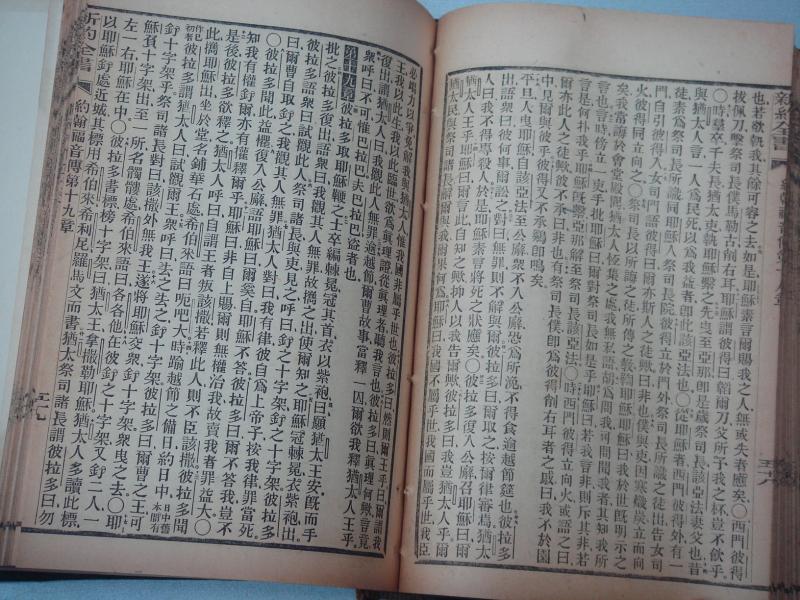 新約全書
也若欲執我其餘可容之去如是耶穌素言爾賜我之人無或失者應矣○西門彼得
拔佩刀擊祭司長僕馬勒古削右耳耶穌謂彼得曰韜爾刀父所予我之杯豈不飲乎
○時羣卒千夫長猶太吏執耶穌繫之先曳至亞那卽是歲祭司長該亞法妻父也昔
與猶太人言一人爲民死以爲我益者卽此該亞法也○從耶穌者西門彼得外有一
徒素爲祭司長所識同耶穌入祭司長院彼得立於門外祭司長所識之徒出告女司
門自引彼得入女司門語彼得曰爾亦斯人之徒歟曰非也僕與吏因寒熾炭立而向
火彼得同立向之○祭司長以所誨之徒所傳之教詰耶穌耶穌曰我於世旣明示之
矣我嘗誨於會堂殿院猶太人恆集之處我無私語胡爲問我可問聞我者其知我所
言也言時傍立一吏手批耶穌曰爾對祭司長如是乎耶穌曰若我言非則斥其非若
言是何扑我乎耶穌旣繫亞那解至祭司長該亞法○時西門彼得立向火或語之曰
爾亦此人之徒歟彼得不承曰非也有祭司長僕卽爲彼得削右耳者之戚曰我不於園
中見爾與彼乎彼得又不承雞卽鳴矣
平旦人曳耶穌自該亞法至公廨衆不入公廨恐爲所浼不得食逾越節筵也彼拉多
出語衆曰彼何事爾訟之對曰無罪則不解與爾彼拉多曰爾取之按爾律審焉猶太
人曰我不得專殺人於是耶穌素言將死之狀應矣○彼拉多復入公廨召耶穌曰爾
猶太人王乎耶穌曰爾言此自知之歟抑人以我告爾歟彼拉多曰我豈猶太人乎爾
民與祭司諸長解爾與我爾行何耶穌曰我國不屬乎世我國而屬乎世我臣
五八
必竭力以爭免解我與猶太人惟我國非屬乎世也彼拉多曰然則爾王乎曰爾謂我
王我以此生我以此臨世欲爲眞理證從眞理者聽我言也彼拉多曰眞理何歟言竟
復出謂猶太人曰我觀此人無罪逾越節爾曹故事當釋一囚爾欲我釋猶太人王乎
衆呼曰不可惟巴拉巴夫巴拉巴盜者也
第十九章 彼拉多取耶穌鞭之士卒編棘冕冠其首衣以紫袍曰願猶太人王安旣而手
批之彼拉多復出語衆曰我觀其人無罪故攜之出使爾知之耶穌冠棘冕衣紫袍出
彼拉多語衆曰試觀此人祭司諸長與吏見之呼曰釘之十字架釘之十字架彼拉多
曰爾曹自取釘之我觀其人無罪猶太人對曰我有律彼自爲上帝子按我律罪當死
○彼拉多聞此益懼復入公廨語耶穌曰爾奚自耶穌不答彼拉多曰爾不答我豈不
知我有權釘爾亦有權釋爾乎耶穌曰非自上賜爾則無權治我故賣我者罪益大○
是後彼拉多欲釋之猶太人呼曰自謂王者叛該撒若釋此人則不臣該撒彼拉多聞
此攜耶穌出坐於堂名鋪華石處希伯來語曰厄吧大時踰越節之備日約日中
彼拉多謂猶太人曰試觀爾王衆呼曰去之去之釘十字架彼拉多曰爾曹之王可
釘十字架乎祭司諸長對曰該撒外無我王遂將耶穌交衆釘十字架衆曳之去○耶
穌負十字架出至一所名髑髏處希伯來語曰各各他在彼釘之十字架又釘二人一
左一右耶穌在中○彼拉多書標榜十字架曰猶太人王拿撒勒耶穌猶太人多讀此標
以耶穌釘處近城其標用希伯來希利尼羅馬文而書猶太祭司諸長謂彼拉多曰勿
新約全書 約翰福音傳第十九章 五九